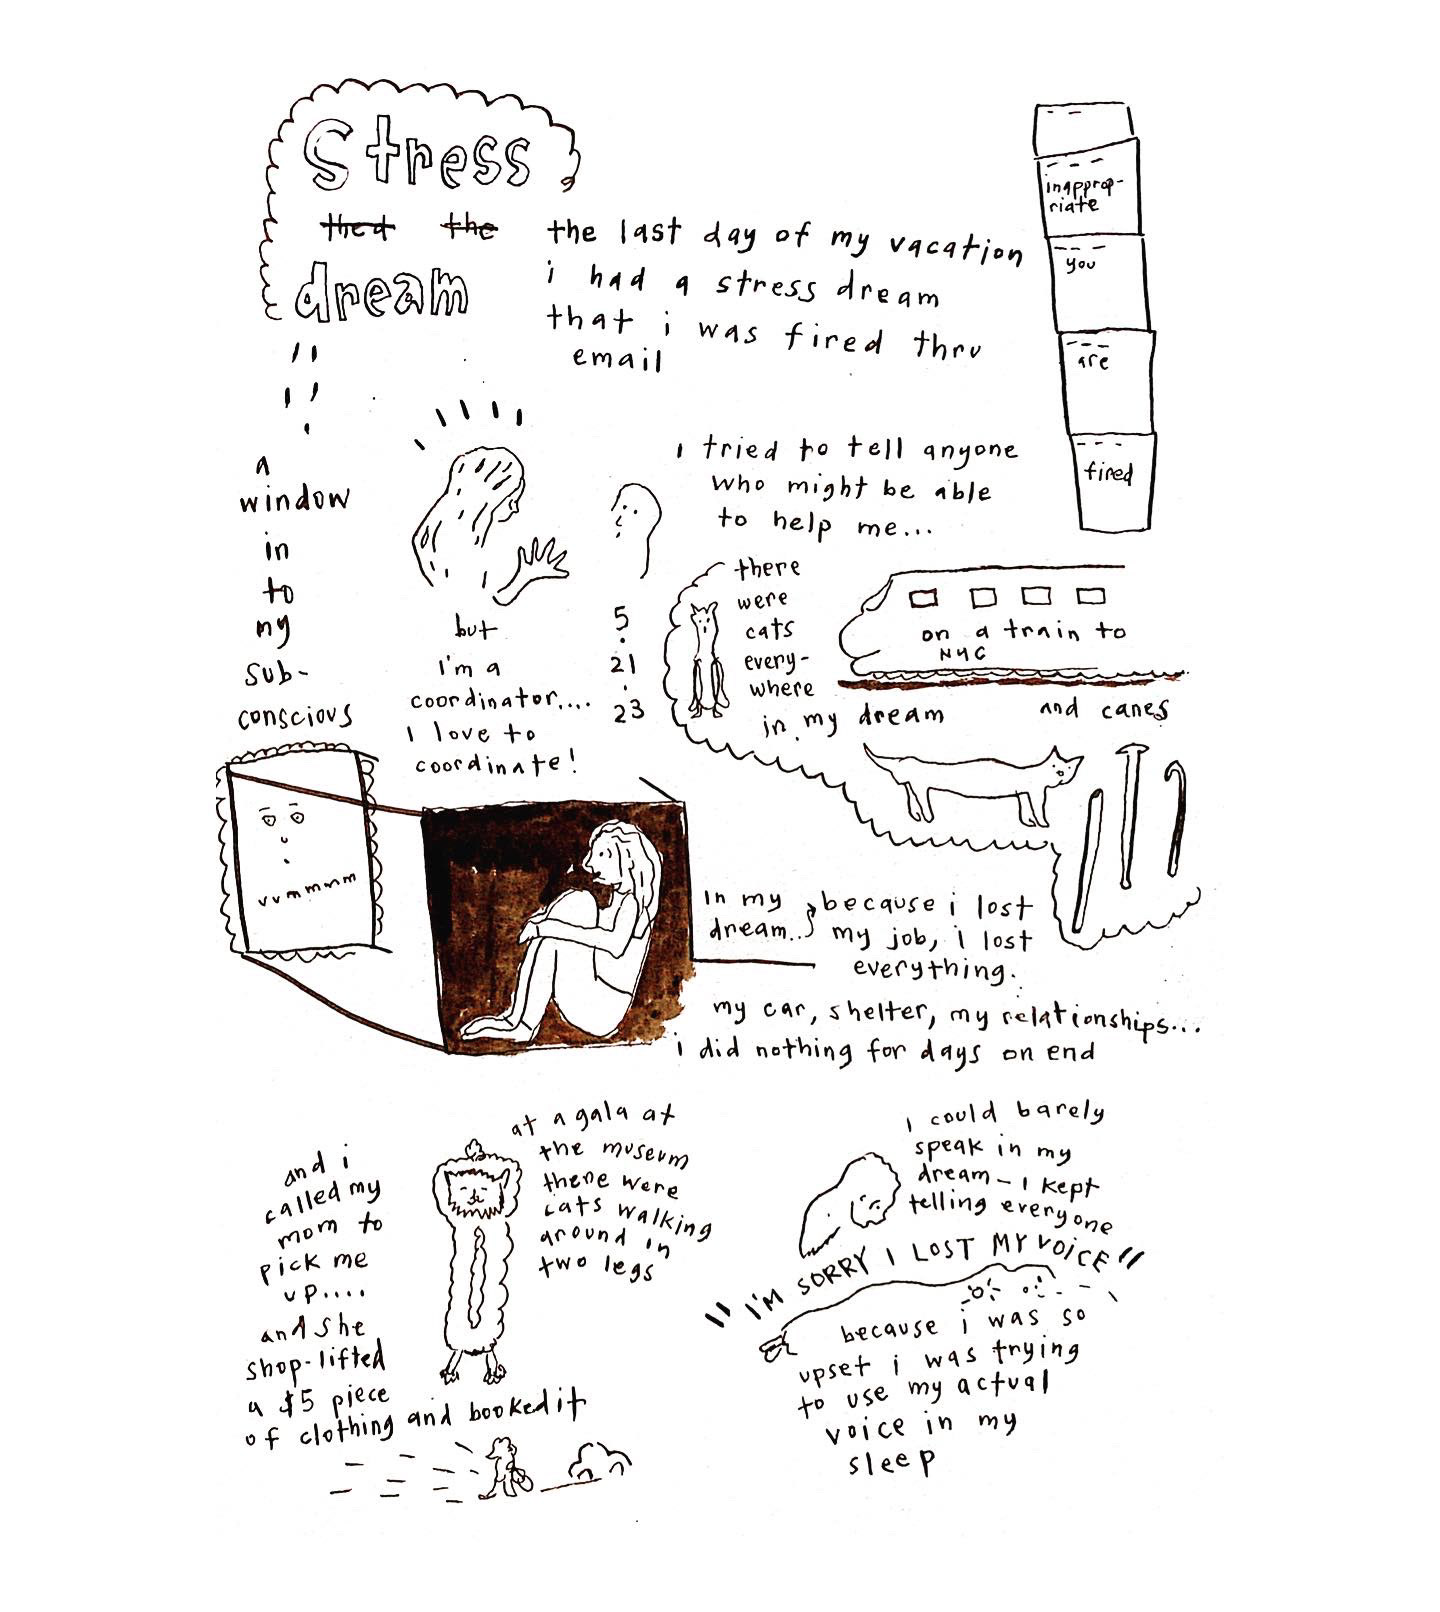 Stress
the last day of my vacation
dream
i had a stress dream
that i was fired thru
email
inapprop-
riate
you
are
fired
a
window
in
to
my
sub-
conscious
but
i'm a
coordinator....
I love to
coordinate!
5
.
21
.
23
I tried to tell anyone
who might be able
to help me...
there
were
cats
every-
where
in my dream
on a train to
NYC
and canes
vvmmmm
in my
dream...
because i lost
my job, i lost
everything.
my car, shelter, my relationships...
i did nothing for days on end
and i
called my
mom to
pick me
up....
and she
shop-lifted
a $5 piece
of clothing and booked it
at a gala at
the museum
there were
cats walking
around in
two legs
I could barely
speak in my
dream - I kept
telling everyone
"I'M SORRY I LOST MY VOICE"
because i was so
upset i was trying
to use my actual
voice in my
sleep